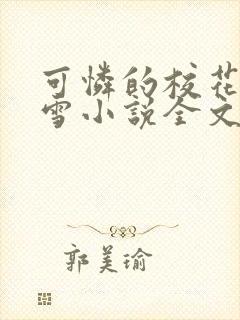 可憐的校花
雪小說全文
郭美瑜